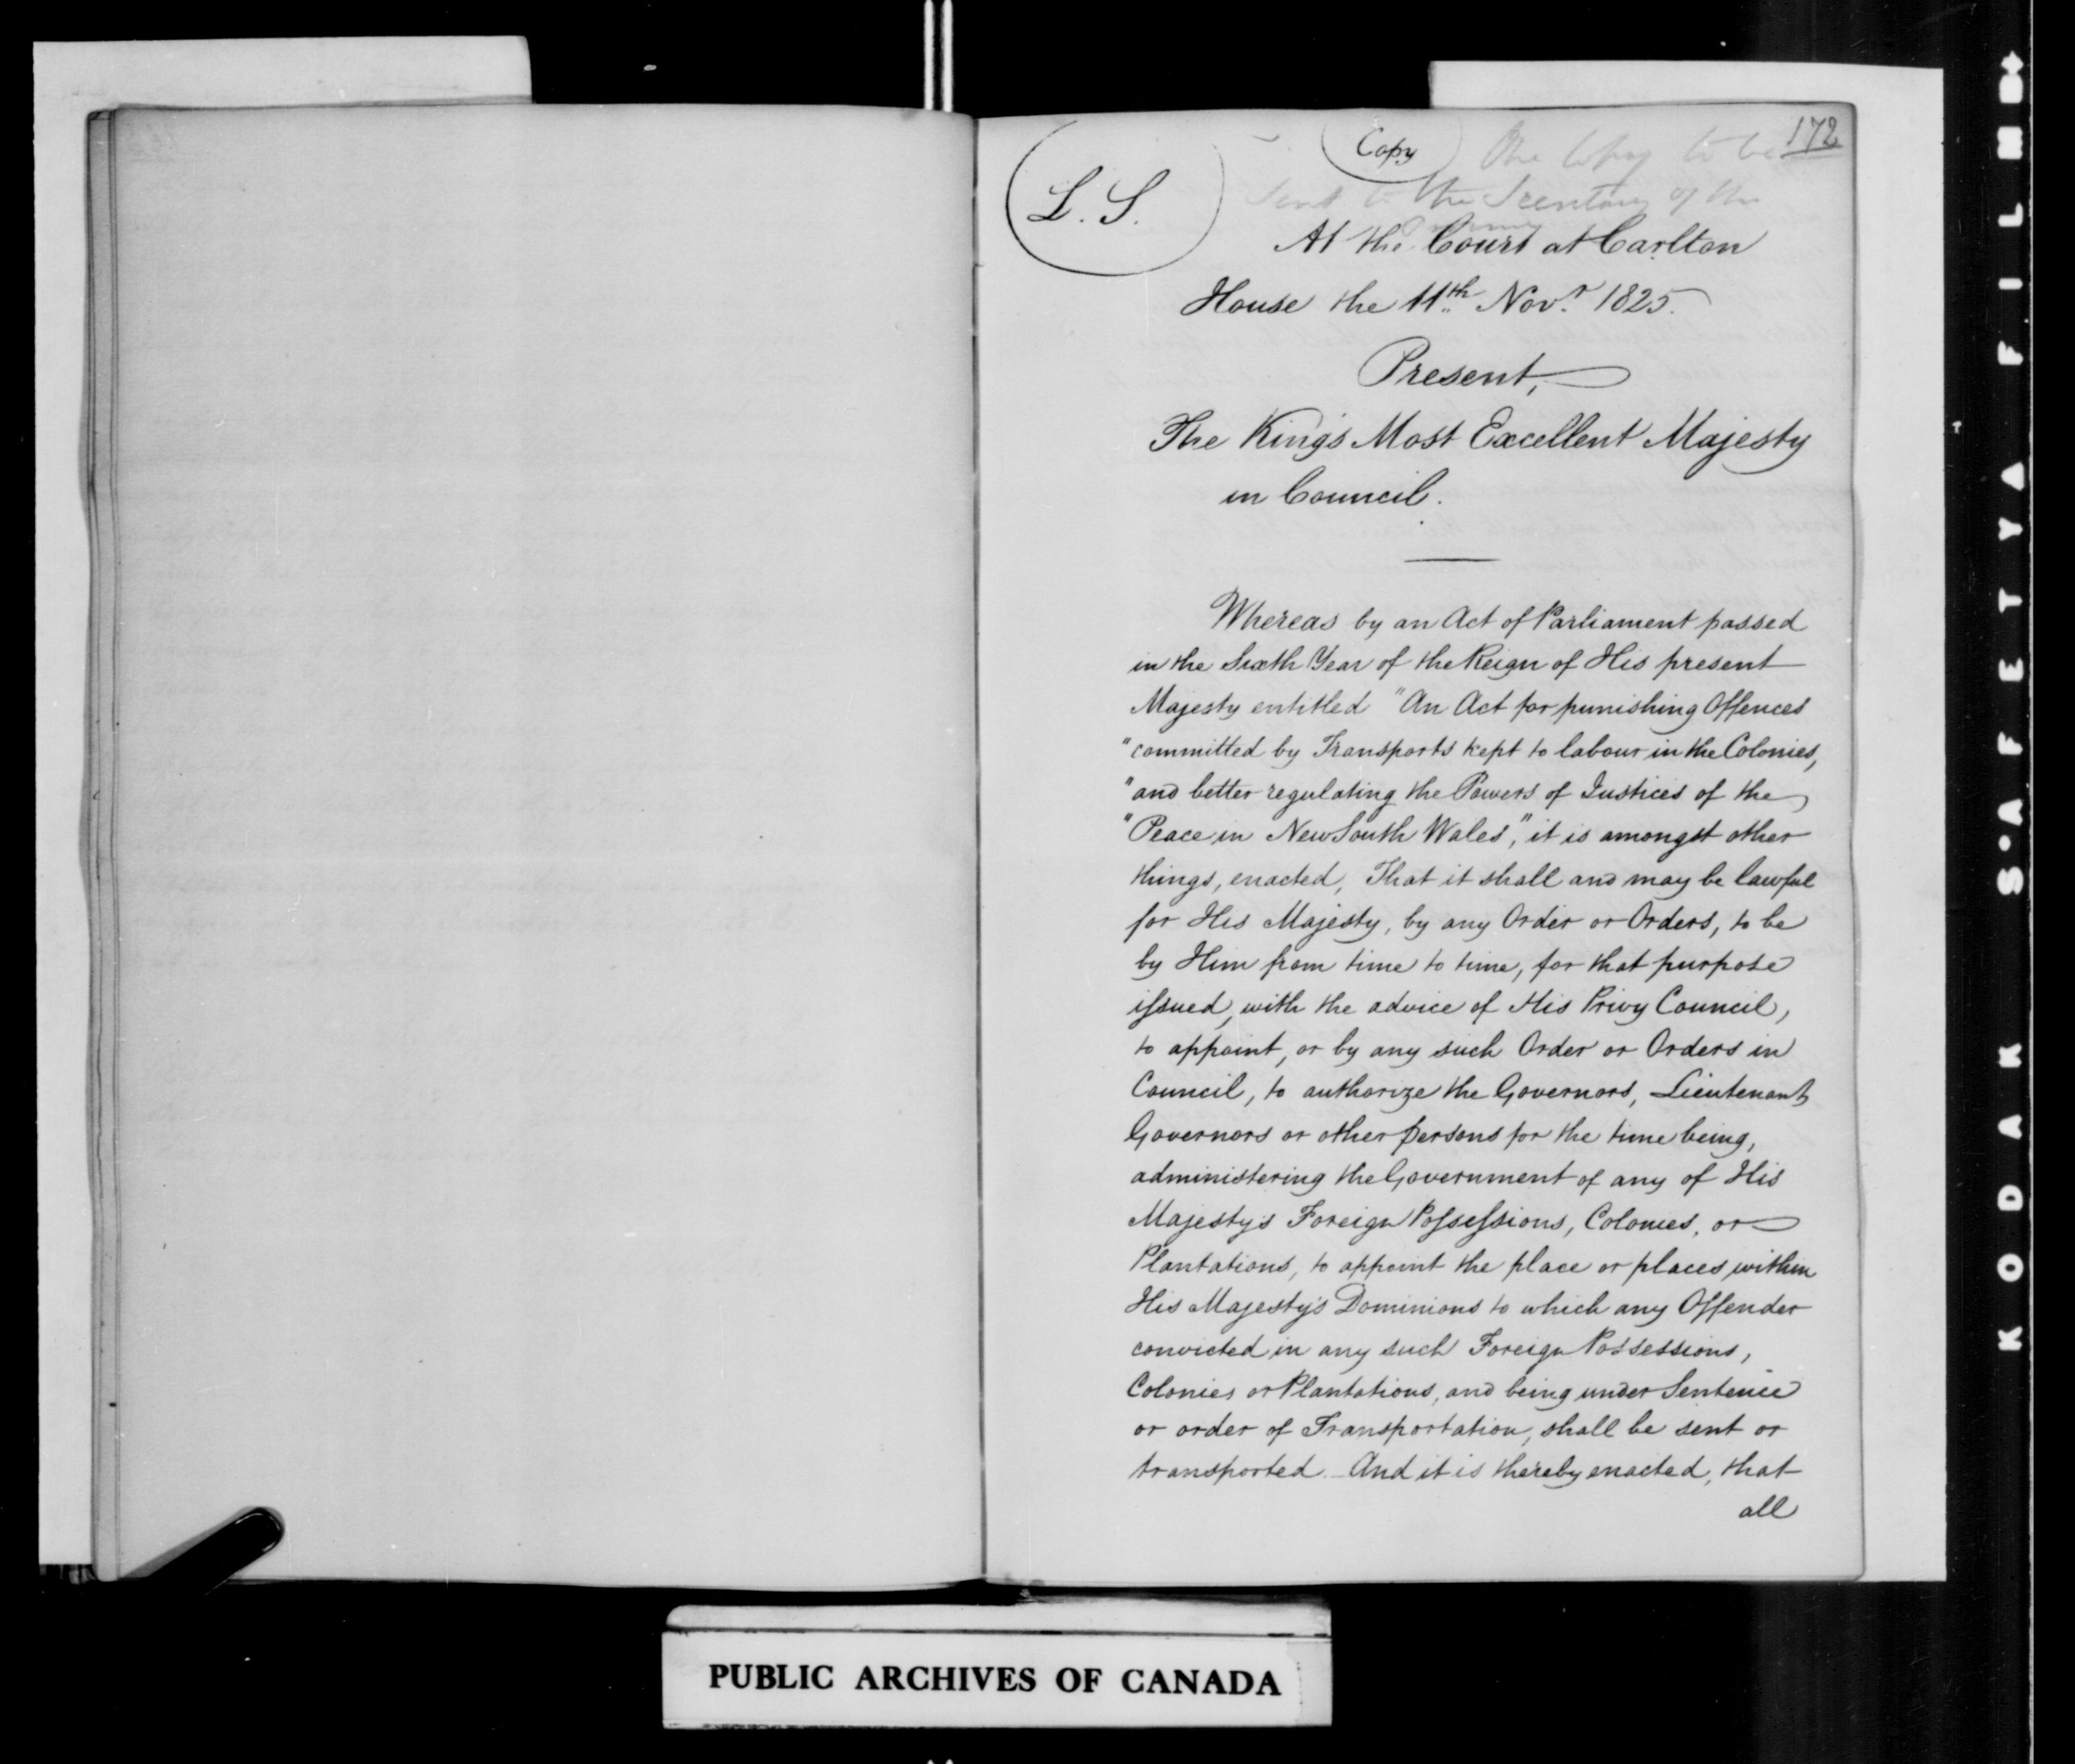 172
Copy
The Copy to be
sent to the Secretary of the
L. S.
At the Court at Carlton
House the 11th Novr. 1825.
Present,
The King's Most Excellent Majesty
in Council.
Whereas by an Act of Parliament passed
in the Sixth Year of the Reign of His present
Majesty entitled "An Act for punishing Offences
"committed by Transports kept to labour in the Colonies,
"and better regulating the Powers of Justices of the
"Peace in New South Wales", it is amongst other
things, enacted, That it shall and may be lawful
for His Majesty, by any Order or Orders, to be
by Him from time to time, for that purpose
ifsued, with the advice of His Privy Council,
to appoint, or by any such Order or Orders in
Council, to authorize the Governors, Lieutenant
Governors or other persons for the time being,
administering the Government of any of His
Majesty's Foreign Pofsefsions, Colonies, or
Plantations, to appoint the place or places within
His Majesty's Dominions to which any Offender
convicted in any such Foreign Possessions,
Colonies or Plantations, and being under Sentence
or order of Transportation, shall be sent or
transported. And it is thereby enacted, that
all
PUBLIC ARCHIVES OF CANADA
KODAK SAFETY FILM